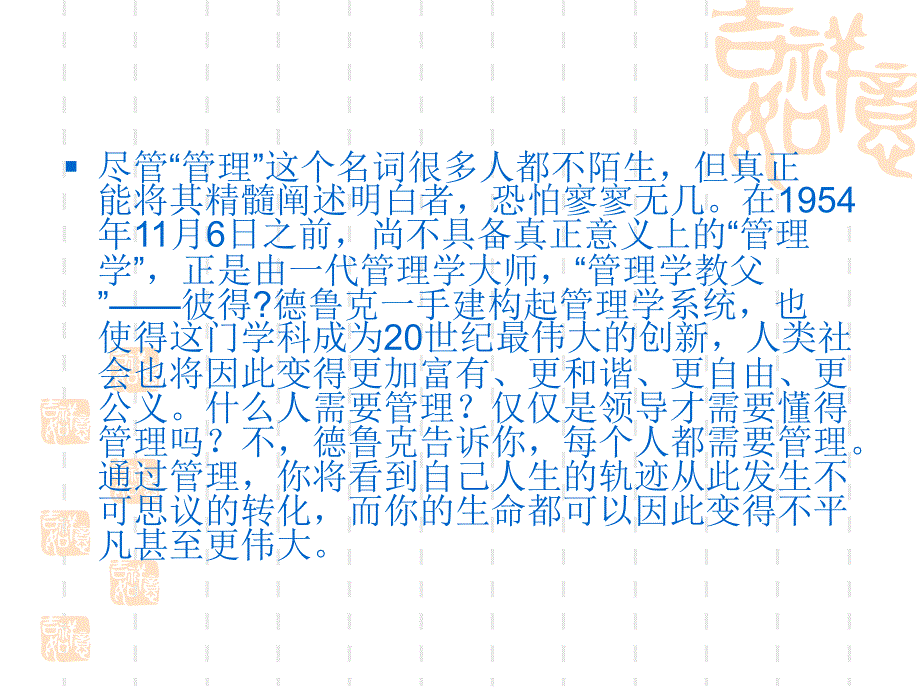 吉祥如意
尽管“管理”这个名词很多人都不陌生，但真正
能将其精髓阐述明白者，恐怕寥寥无几。在1954
年11月6日之前，尚不具备真正意义上的“管理
学”，正是由一代管理学大师，“管理学教父
”——彼得?德鲁克一手建构起管理学系统，也
使得这门学科成为20世纪最伟大的创新，人类社
会也将因此变得更加富有、更和谐、更自由、更
公义。什么人需要管理？仅仅是领导才需要懂得
管理吗？不，德鲁克告诉你，每个人都需要管理。
通过管理，你将看到自己人生的轨迹从此发生不
可思议的转化，而你的生命都可以因此变得不平
凡甚至更伟大。
吉祥如意
吉祥如意
吉祥如意
吉祥如意